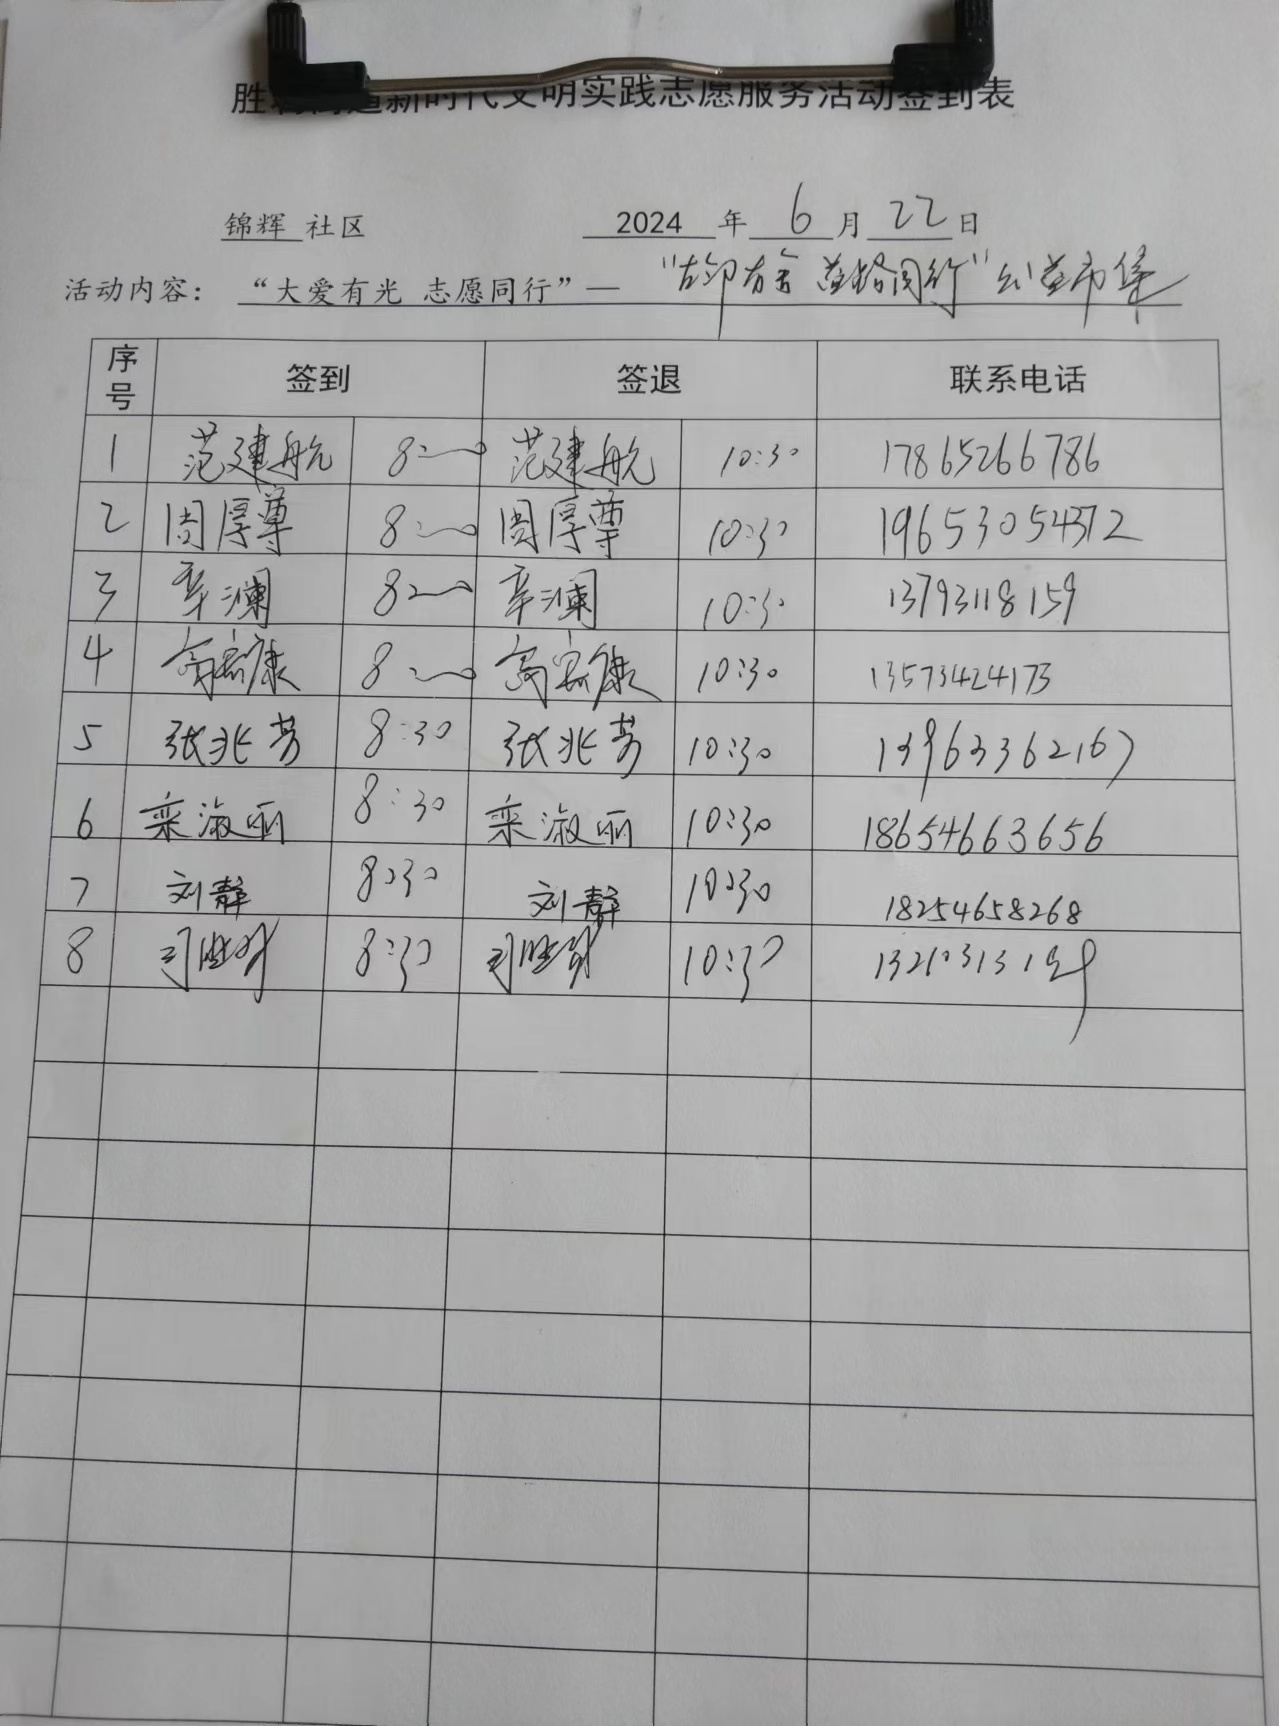 新时代文明实践志愿服务活动签到表
锦辉 社区 2024 年 6 月 22 日
活动内容： “大爱有光 志愿同行”— 公益市集
序号 签到 签退 联系电话
1 范建航 8:00 范建航 10:30 17865266786
2 周厚尊 8:00 周厚尊 10:30 19653054372
3 辛澜 8:00 辛澜 10:30 13793118159
4 8:00 10:30 13573424173
5 张兆芳 8:30 张兆芳 10:30 13963362167
6 栾淑丽 8:30 栾淑丽 10:30 18654663656
7 刘静 8:30 刘静 10:30 18254658268
8 8:30 10:30